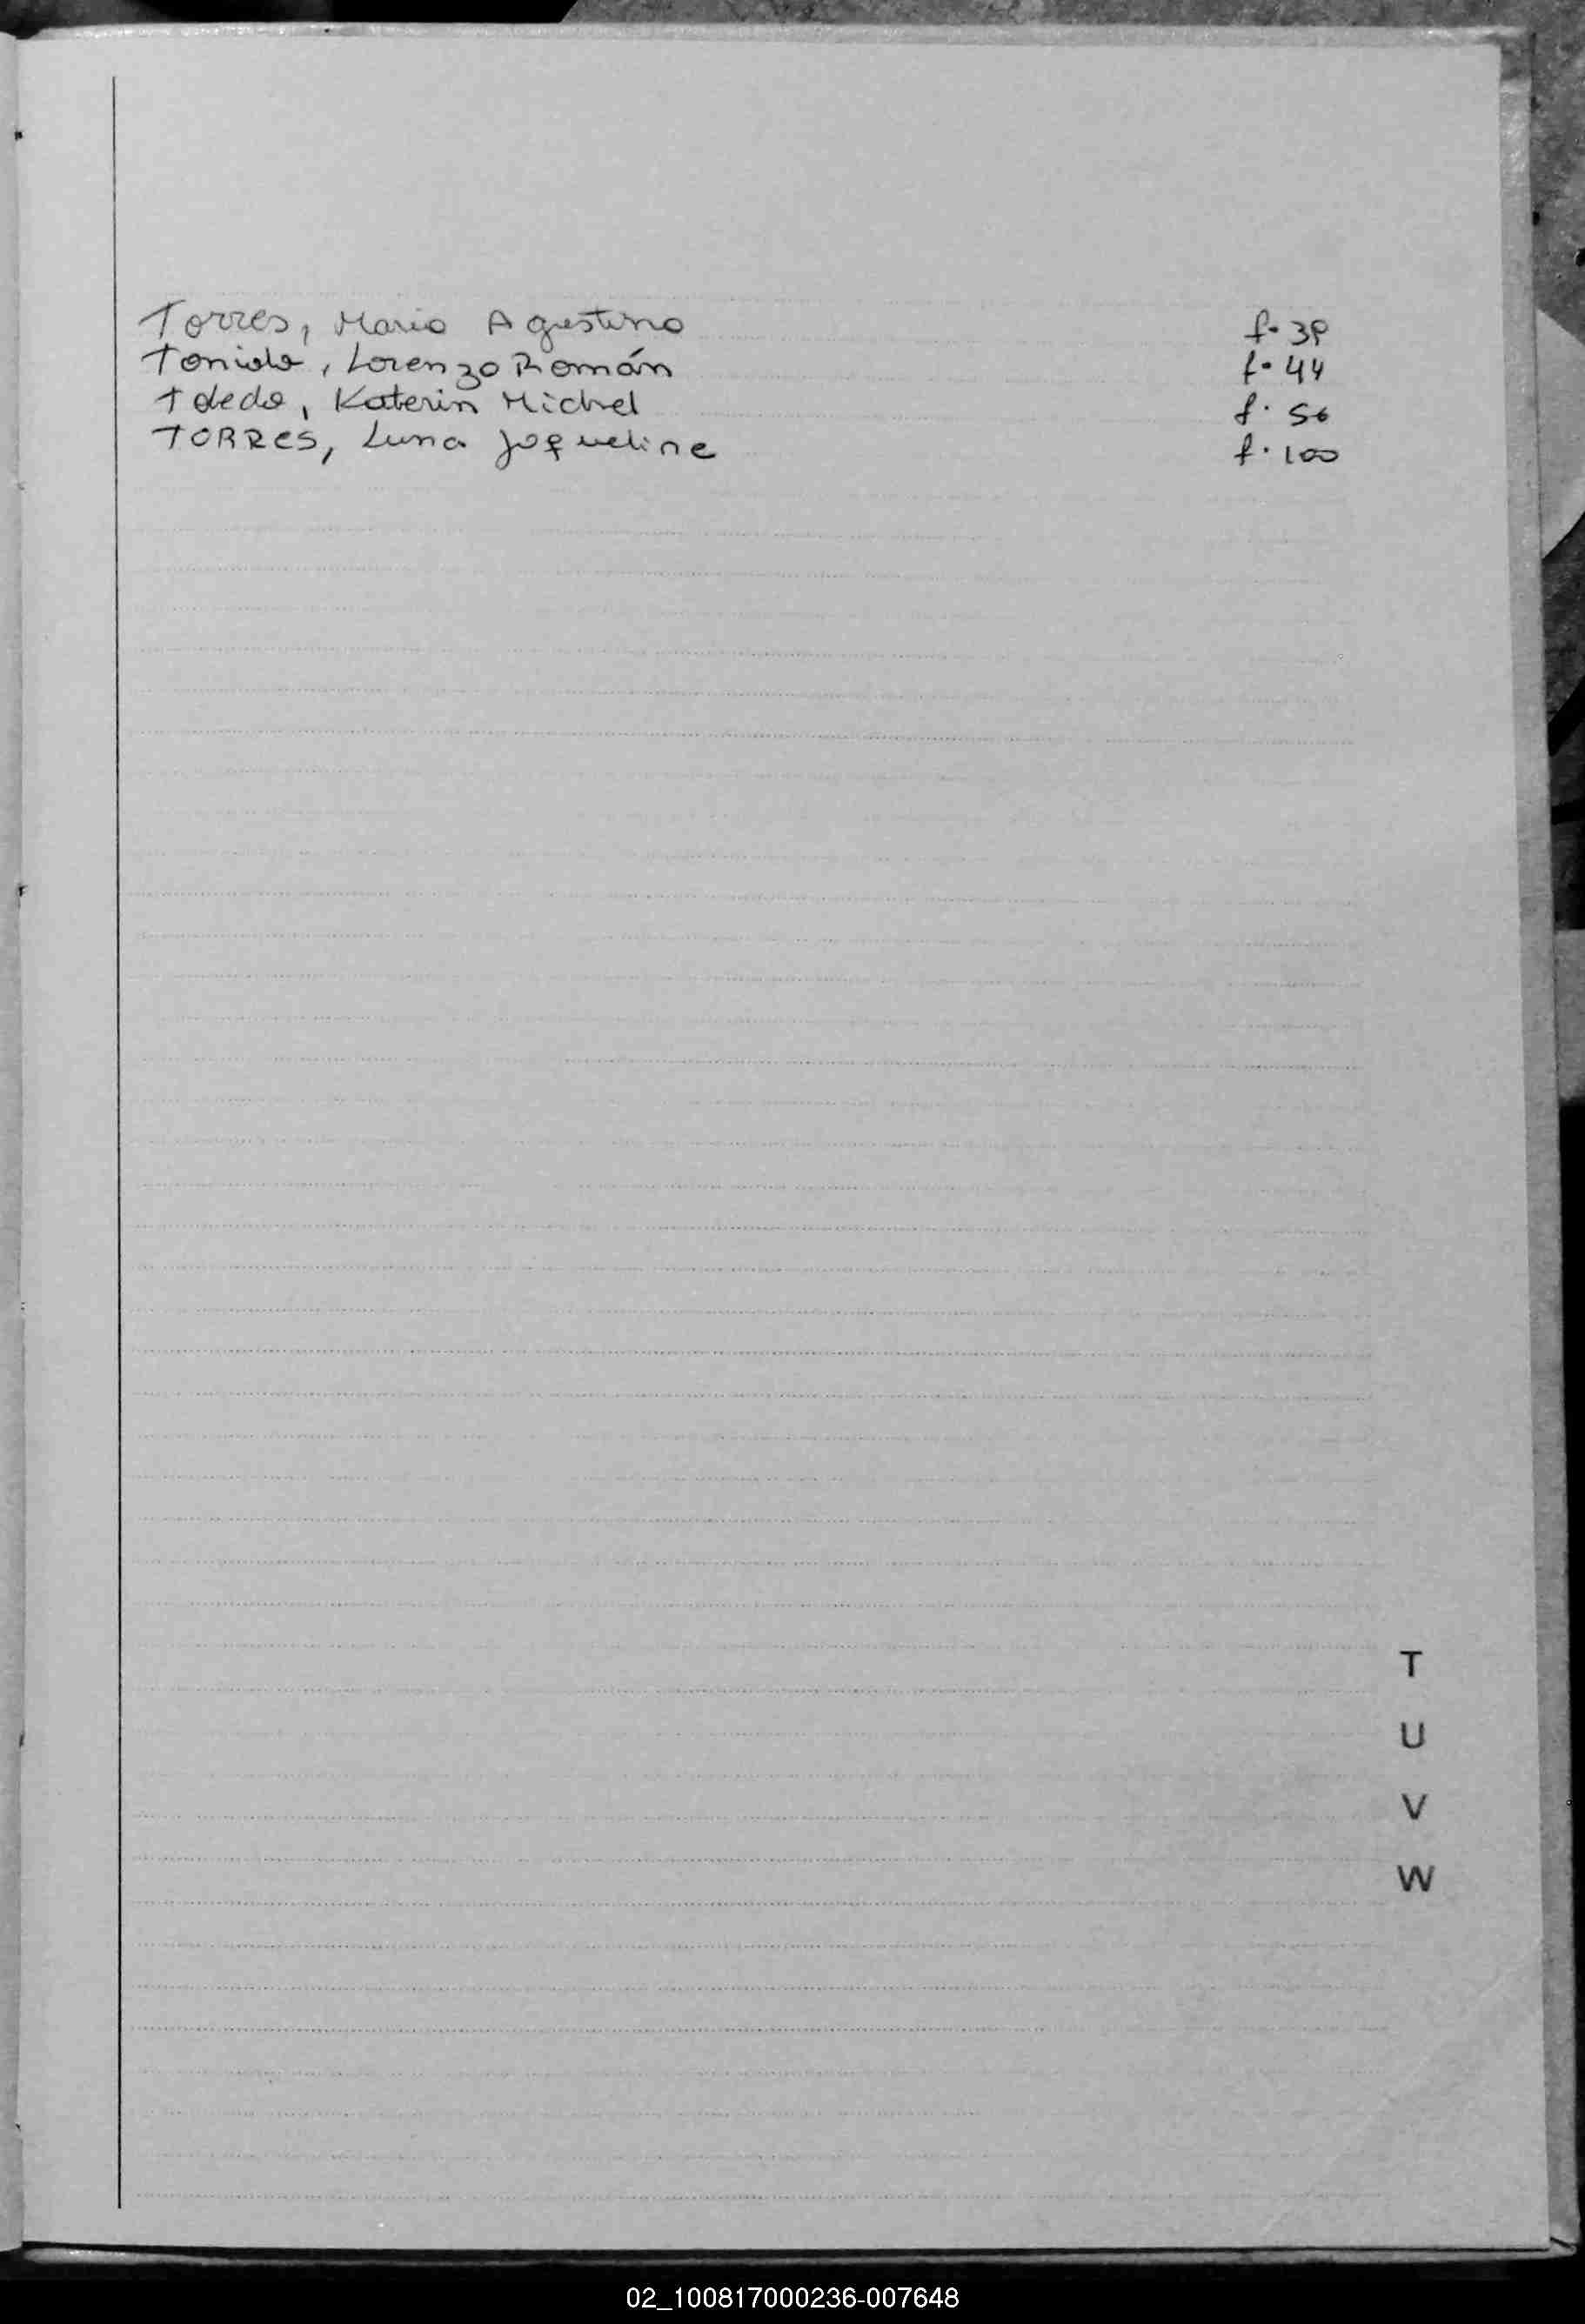 Torres, Mario Agustino f. 39
Lorenzo Román f. 44
Toledo, Katerin Michel f. 56
TORRES, Luna Jaqueline f. 100
T
U
V
W
02_100817000236-007648